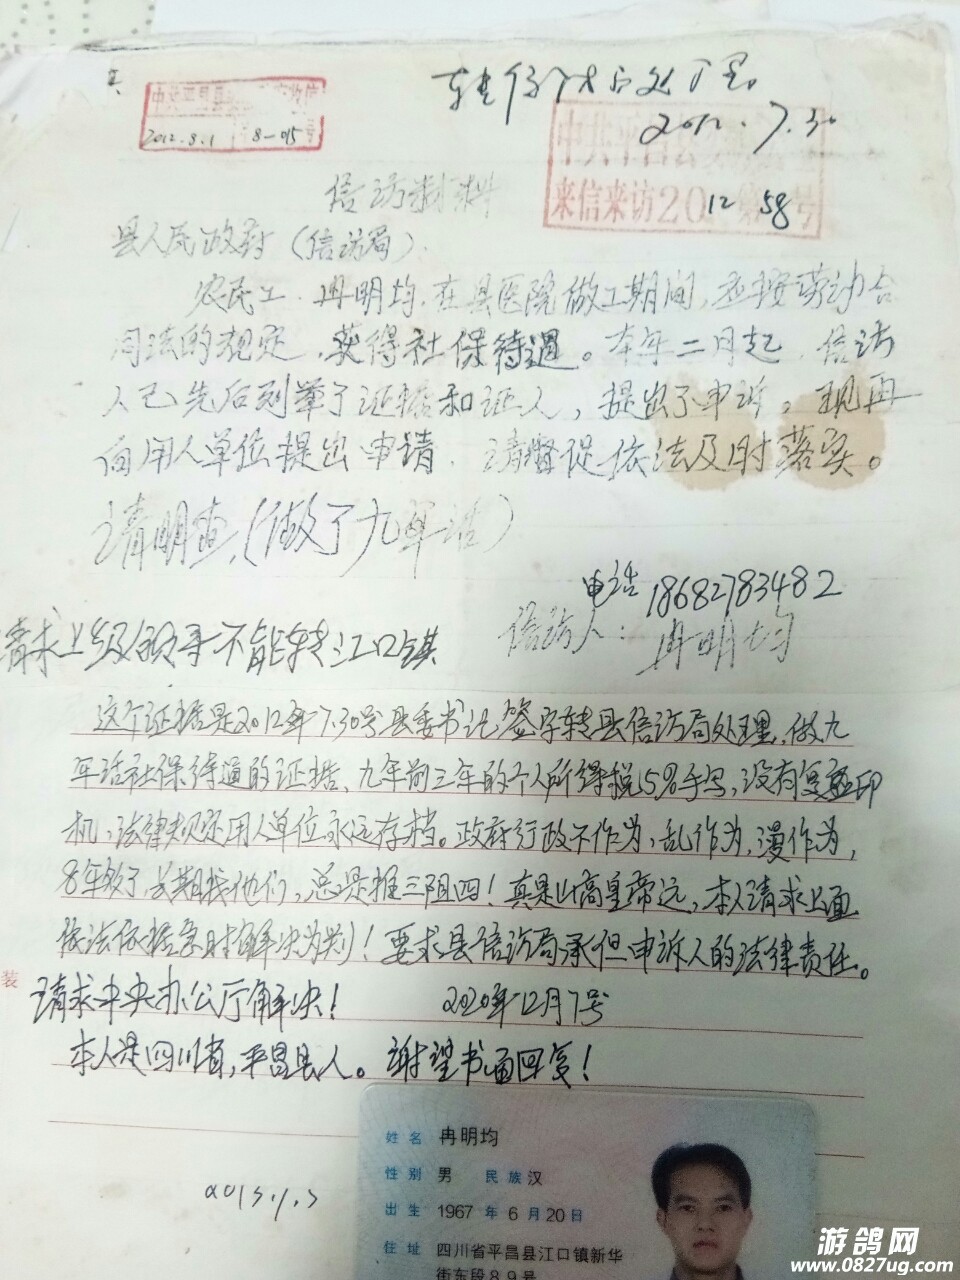 转信访局处理
2012.7.30
2012.8.1 8-015号
中共平昌县
来信来访2012第58号
信访材料
县人民政府（信访局）.
农民工.冉明均.在县医院做工期间,应按劳动合
同法的规定.获得社保待遇。本年二月起.信访
人已先后列举了证据和证人,提出了申诉。现再
向用人单位提出申请.请督促依法及时落实。
请明查.(做了九年活)
电话18682783482
信访人：冉明均
请求上级领导不能转江口镇
这个证据是2012年7.30号县委书记签字转县信访局处理,做九
年活社保待遇的证据、九年前三年的个人所得税5%手写,没有复印
机、法律规定用人单位永远存档。政府行政不作为,乱作为,漫作为,
8年多了长期找他们,总是推三阻四！真是山高皇帝远,本人请求上面
依法依据及时解决为盼！要求县信访局承但申诉人的法律责任。
装
请求中央办公厅解决！ 2020年12月7号
本人是四川省,平昌县人。谢望书面回复！
2013.1.3
姓名 冉明均
性别 男 民族 汉
出生 1967 年 6 月 20 日
住址 四川省平昌县江口镇新华
街东段89号
游鸽网
www.0827ug.com